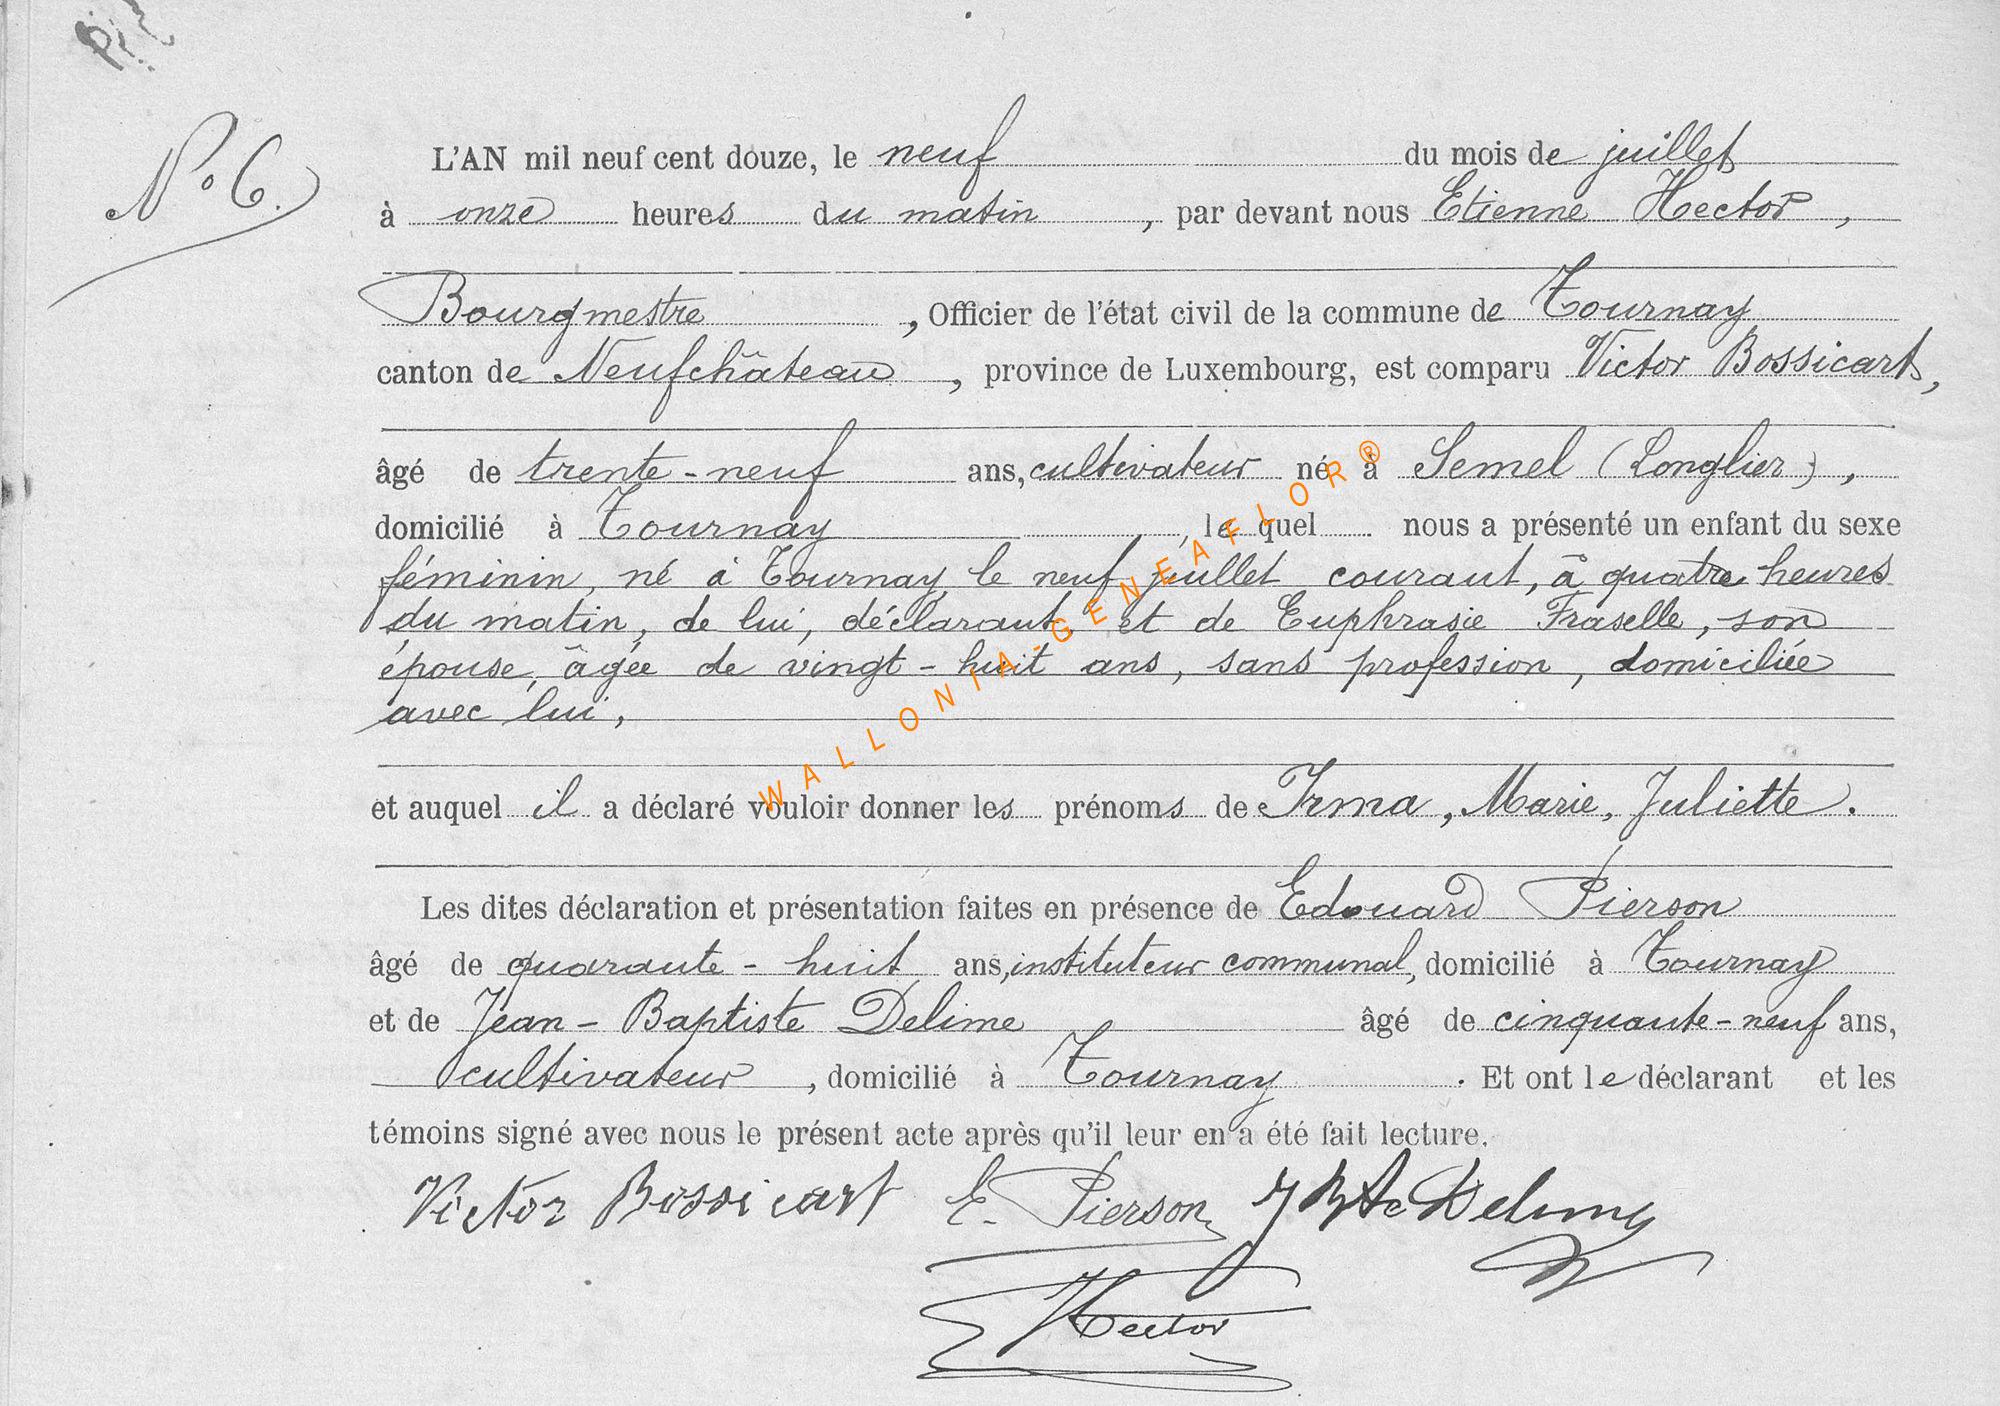 N° 6.
L'AN mil neuf cent douze, le neuf du mois de juillet
à onze heures du matin, par devant nous Etienne Hector,
Bourgmestre, Officier de l'état civil de la commune de Tournay
canton de Neufchâteau, province de Luxembourg, est comparu Victor Bossicart,
âgé de trente-neuf ans, cultivateur né à Semel (Longlier),
domicilié à Tournay, lequel nous a présenté un enfant du sexe
féminin, né à Tournay, le neuf juillet courant, à quatre heures
du matin, de lui, déclarant, et de Euphrasie Fraselle, son
épouse, âgée de vingt-huit ans, sans profession, domiciliée
avec lui,
et auquel il a déclaré vouloir donner les prénoms de Irma, Marie, Juliette.
Les dites déclaration et présentation faites en présence de Edouard Pierson
âgé de quarante-huit ans, instituteur communal, domicilié à Tournay
et de Jean-Baptiste Delime âgé de cinquante-neuf ans,
cultivateur, domicilié à Tournay. Et ont le déclarant et les
témoins signé avec nous le présent acte après qu'il leur en a été fait lecture.
Victor Bossicart E. Pierson
Hector
WALLONIA-GENEAFLOR®